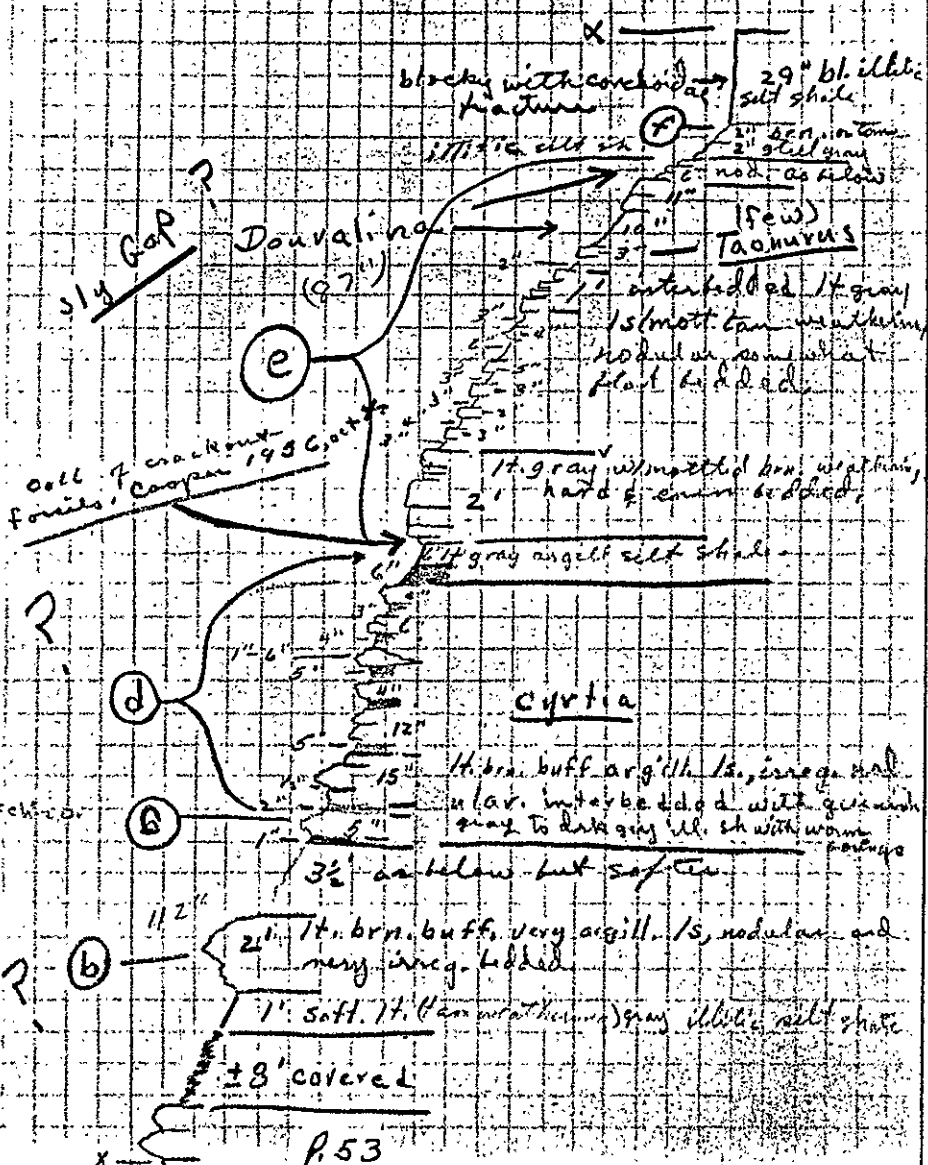 α
blocky with conchoidal fracture
29" bl. illitic silt shale
f
2" brn. on tan
2" still gray
illitic silt sh.
nod. as below
11"
10"
(few)
3"
Taonurus
Sly Gap ?
Douvalina
(87")
2"
1' interbedded lt gray
ls/mott tan weathering
nodular, somewhat
flat bedded.
e
3"
coll. of crackout
fossils, Cooper 1956, oct
lt. gray w/mottled brn. weathering,
2' hard & even bedded,
lt gray argill silt shale
6"
?
4"
1"-6"
5"
d
4"
Cyrtia
12"
5"
15"
lt. brn. buff argill. ls., irreg. nod
ular. interbedded with greenish
gray to drk gray ill. sh with worm
borings
2"
1"
5"
3½ as below but softer
112"
b
2' lt. brn. buff, very argill. ls, nodular and
very irreg. bedded
?
1' soft. lt. (tan weathering) gray illitic silt shale
±8' covered
x
P. 53